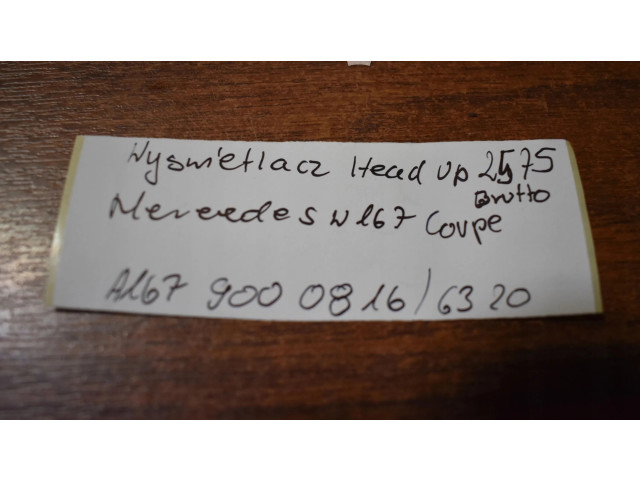 Wyświetlacz Head up 2575
Brutto
Mercedes W167 Coupe
A167 900 0816/6320